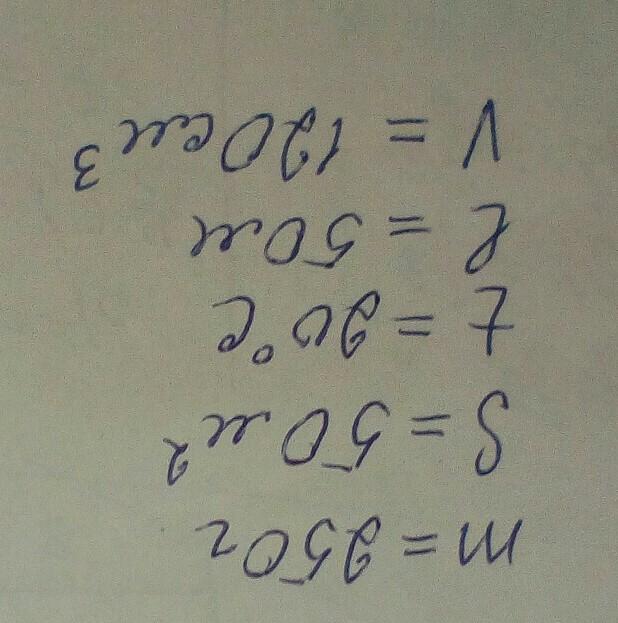 m = 250 г
S = 50 м²
t = 20°C
ℓ = 50 м
V = 120 см³